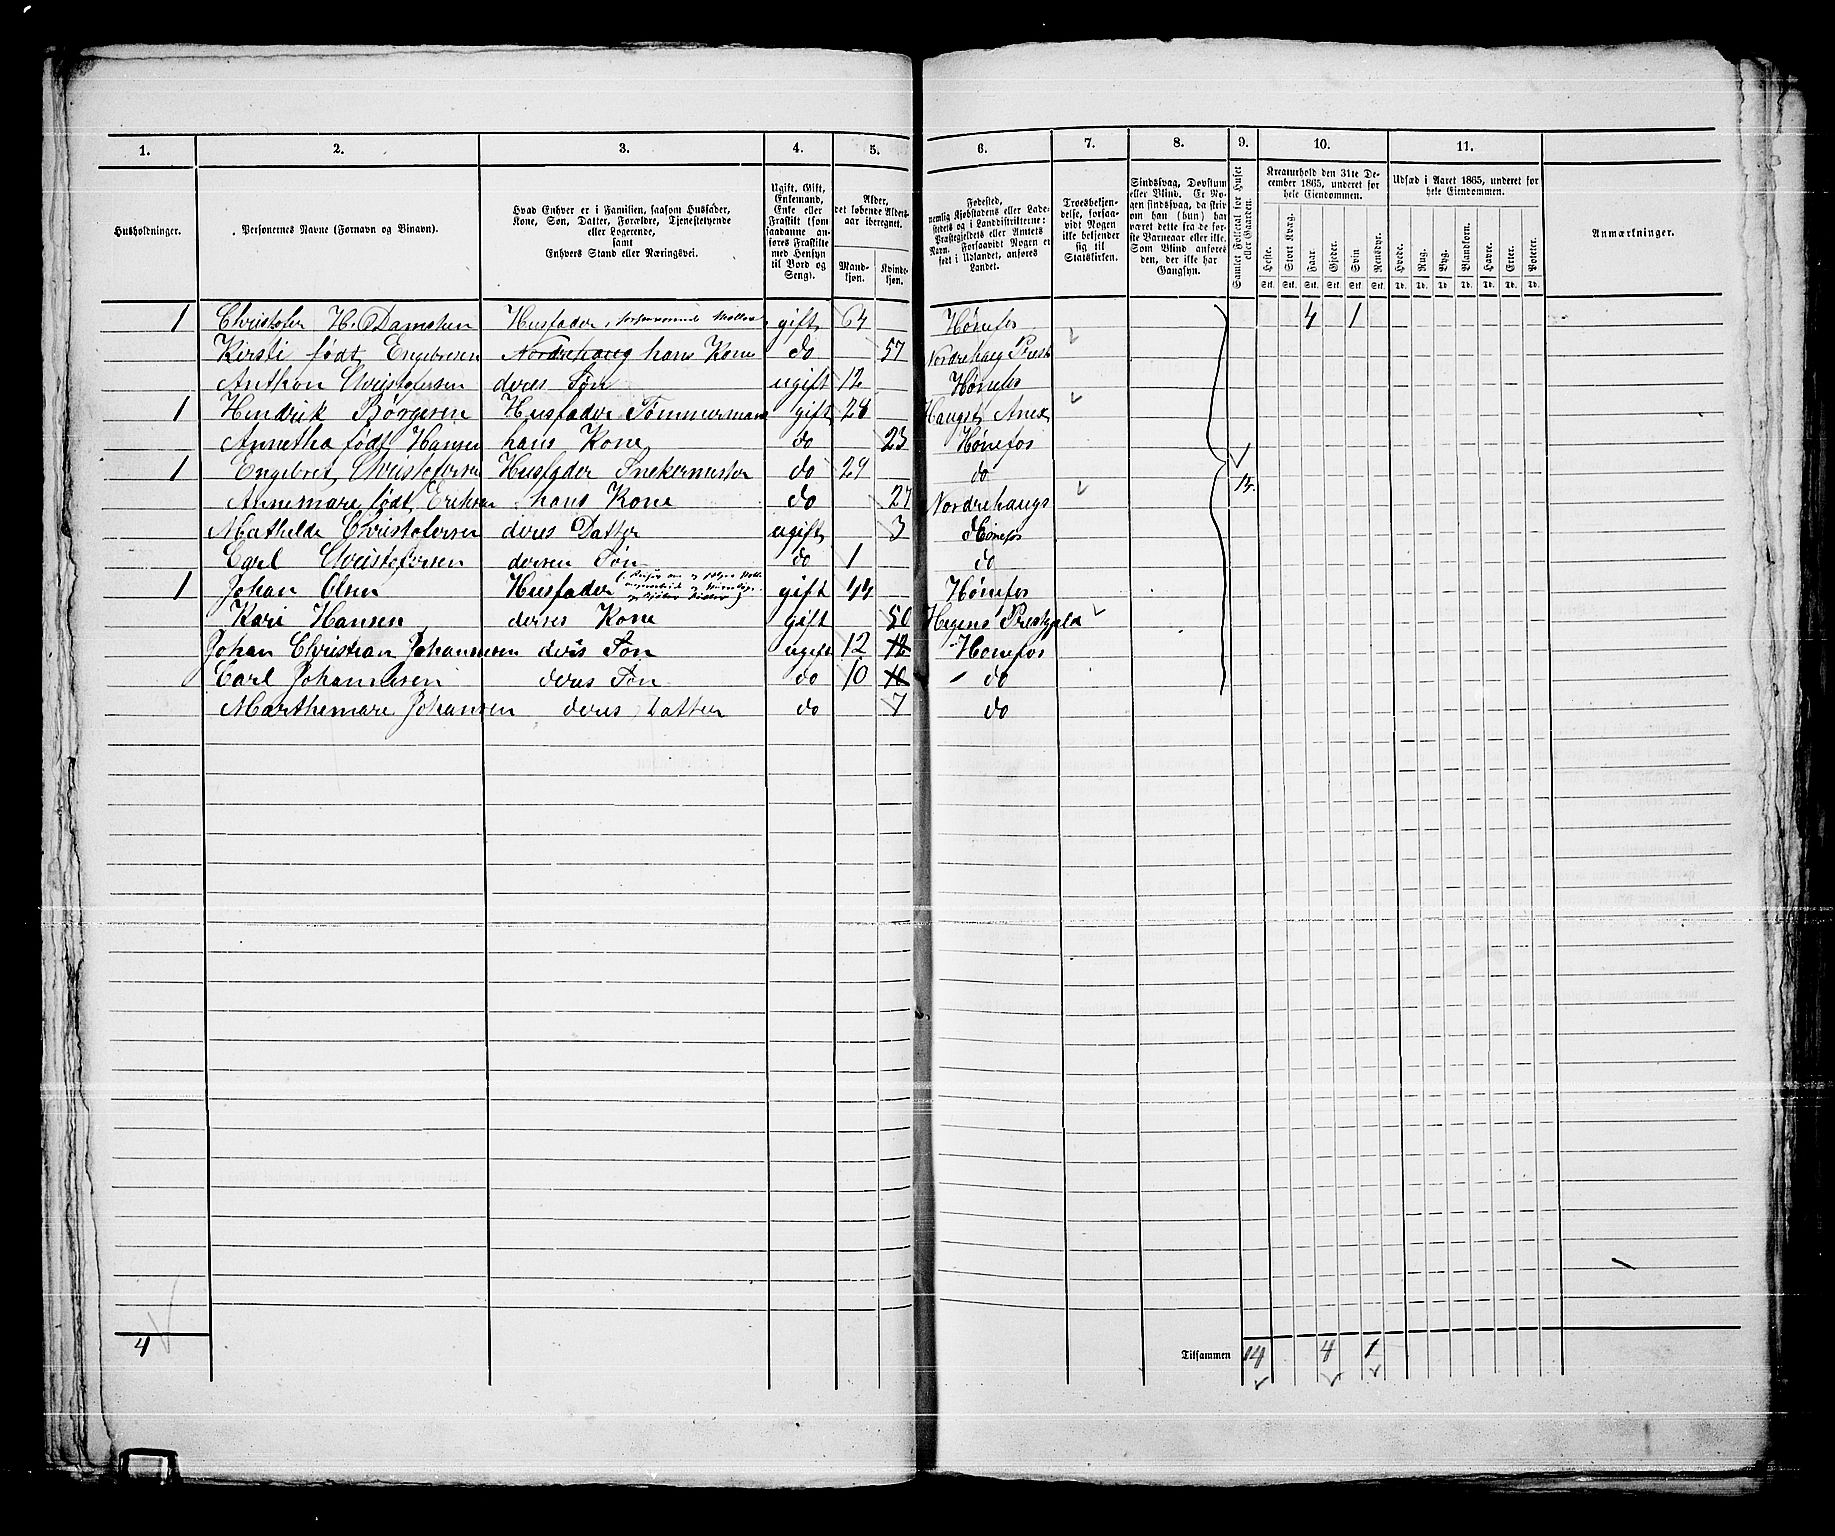 1. 2. 3. 4. 5. 6. 7. 8. 9. 10. 11.
Husholdninger.
Personernes Navne (Fornavn og Binavn).
Hvad Enhver er i Familien, saasom Husfader,
Kone, Søn, Datter, Forældre, Tjenestetyende
eller Logerende,
samt
Enhvers Stand eller Næringsvei.
Ugift, Gift,
Enkemand,
Enke eller
Fraskilt (som
saadanne an-
føres Fraskilte
med Hensyn
til Bord og
Seng).
Alder,
det løbende Alders-
aar iberegnet.
Mand-
kjøn.
Kvinde-
kjøn.
Fødested,
nemlig Kjøbstadens eller Lade-
stedets og i Landdistrikterne:
Præstegjeldets eller Amtets
Navn. Forsaavidt Nogen er
født i Udlandet, anføres
Landet.
Troesbekjen-
delse, forsaa-
vidt Nogen
ikke bekjender
sig til
Statskirken.
Sindssvag, Døvstum
eller Blind. Er No-
gen sindssvag, da skriv
om han (hun) har
været dette fra de før-
ste Barneaar eller ikke.
Som Blind anføres
den, der ikke har
Gangsyn.
Samlet Folketal for Huset
eller Gaarden.
Kreaturhold den 31te De-
cember 1865, underet for
hele Eiendommen.
Heste. Stort Kvæg. Faar. Gjeder. Svin. Rensdyr.
Stk. Stk. Stk. Stk. Stk. Stk.
Udsæd i Aaret 1865, underet for
hele Eiendommen.
Hvede. Rug. Byg. Blandkorn. Havre. Erter. Poteter.
Td. Td. Td. Td. Td. Td. Td.
Anmærkninger.
1 Christofer H. Damsken Husfader, gift 64 Hønefos 4 1
Kirsti født Engebresen Nordrehaug hans Kone do 57 Nordrehaug Prest
Anthon Christofersen deres Søn ugift 12 Hønefos
1 Hendrik Børgesen Husfader Tømmermand gift 28 Haugs Anex
Annetha født Hansen hans Kone do 23 Hønefos
1 Engebret Christofersen Husfader Snekermester do 29 do
Annemare født Eriksen hans Kone do 27 Nordrehaugs 14
Mathelde Christofersen deres Datter ugift 3 Hønefos
Carl Christofersen derses Søn do 1 do
1 Johan Olsen Husfader gift 44 Hønefos
Kari Hansen derses Kone gift 50 Prestgjeld
Johan Christian Johannesen deris Søn ugift 12 12 Hønefos
Carl Johannesen deres Søn do 10 10 do
Marthemare Johansen deres Datter do 7 do
4 Tilsammen 14 4 1